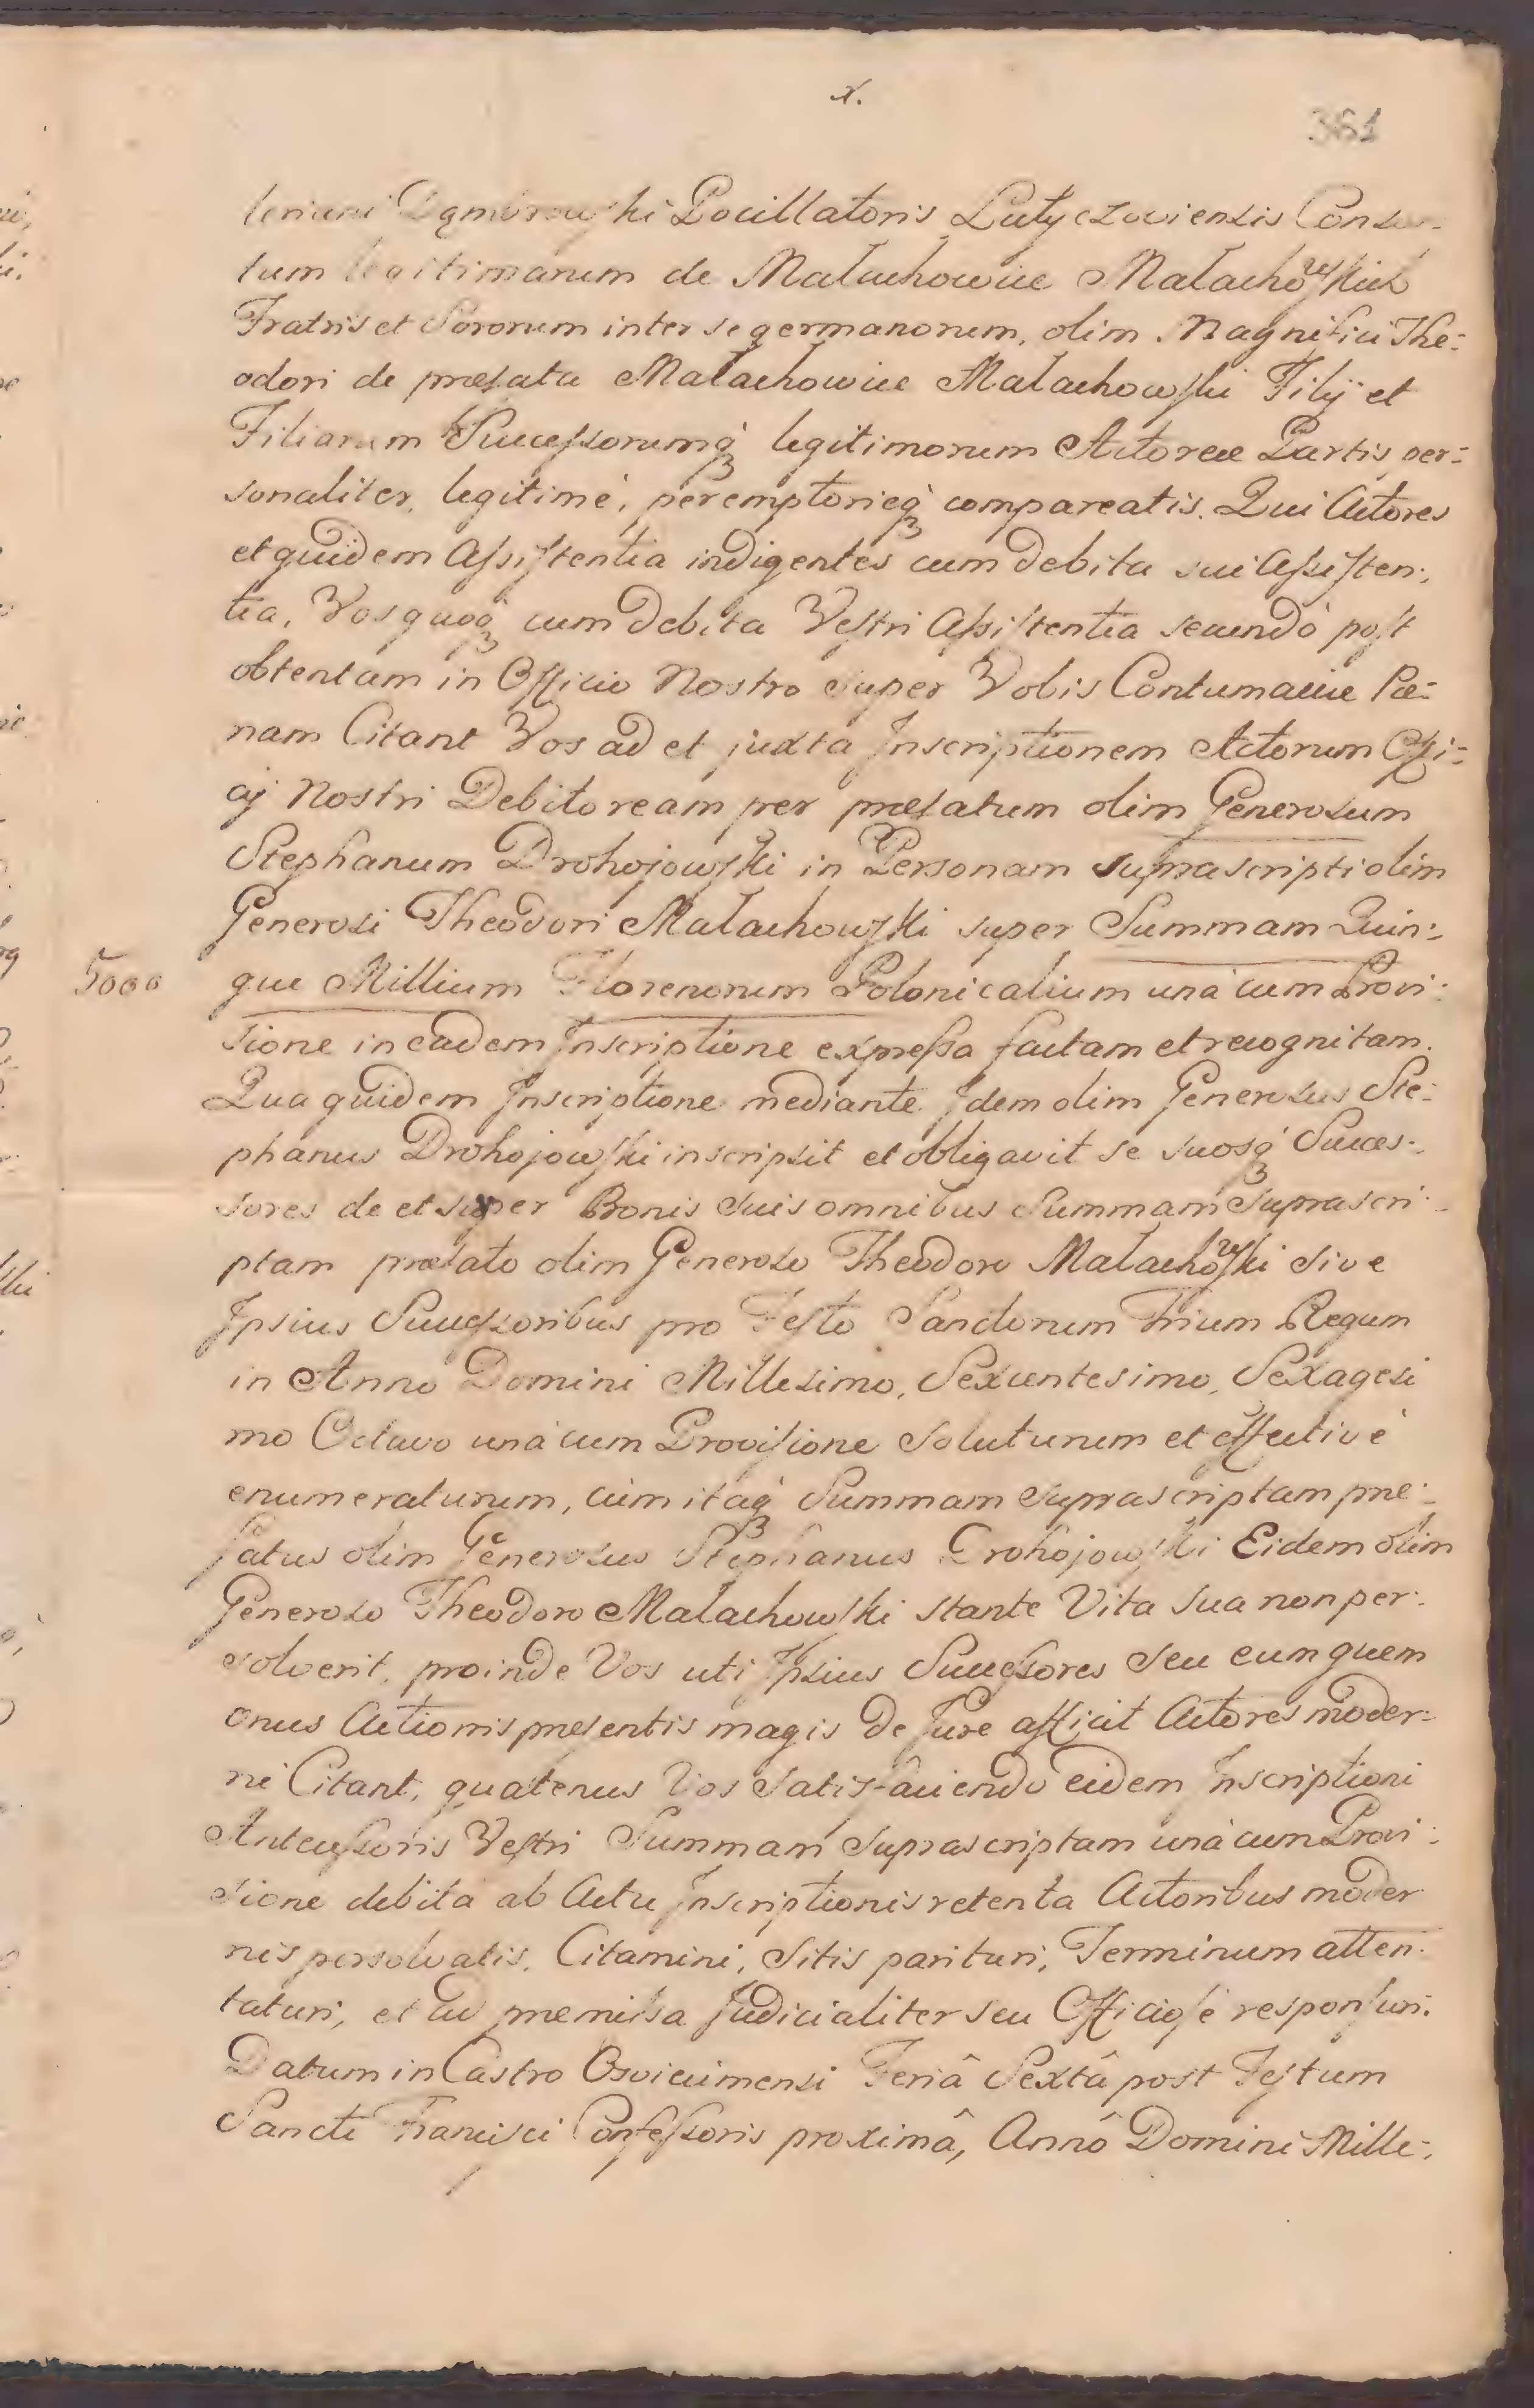 x.
361
leriani Dąmbrowski Pocillatoris Latyczoviensis Consor-
tum legitimarum de Małachowice Małachowskich
Fratris et Sororum inter se germanorum, olim Magnifici The-
odori de præfata Małachowice Małachowski Filij et
Filiarum Successorumq3 legitimorum Actoreæ Partis per-
sonaliter, legitimè, peremptorieq3 compareatis. Qui Actores
et quidem Assistentia indigentes cum debita sui Assisten-
tia, Vos quoq3 cum debita Vestri Assistentia secundò post
obtentam in Officio Nostro super Vobis Contumaciæ Pœ-
nam Citant Vos ad et juxta Inscriptionem Actorum Offi-
cij Nostri Debitoream per præfatum olim Generosum
Stephanum Drohojowski in Personam suprascripti olim
Generosi Theodori Małachowski super Summam Quin-
5000 que Millium Florenorum Polonicalium unà cum Provi-
sione in eadem Inscriptione expressa factam et recognitam.
Qua quidem Inscriptione mediante Idem olim Generosus Ste-
phanus Drohojowski inscripsit et obligavit se suosq3 Succes-
sores de et super Bonis suis omnibus Summam Suprascri-
ptam præfato olim Generoso Theodoro Małachowski sive
Ipsius Successoribus pro Festo Sanctorum Trium Regum
in Anno Domini Millesimo, Sexcentesimo, Sexagesi
mo Octavo unà cum Provisione soluturum et effectivè
enumeraturum, cùm itaq3 Summam suprascriptam præ-
fatus olim Generosus Stephanus Drohojowski Eidem olim
Generoso Theodoro Małachowski stante Vita sua non per-
solverit, proinde Vos uti Ipsius Successores seu eum quem
onus Actionis præsentis magis de Jure afficit Actores moder-
ni Citant, quatenus Vos Satisfaciendo eidem Inscriptioni
Antecessoris Vestri Summam suprascriptam unà cum Provi-
sione debita ab Actu Inscriptionis retenta Actoribus moder
nis persolvatis. Citamini, Sitis parituri, Terminum atten-
taturi, et ad præmissa Judicialiter seu Officiosè responsuri.
Datum in Castro Osvicimensi Feriâ Sextâ post Festum
Sancti Francisci Confessoris proximâ, Annô Domini Mille-